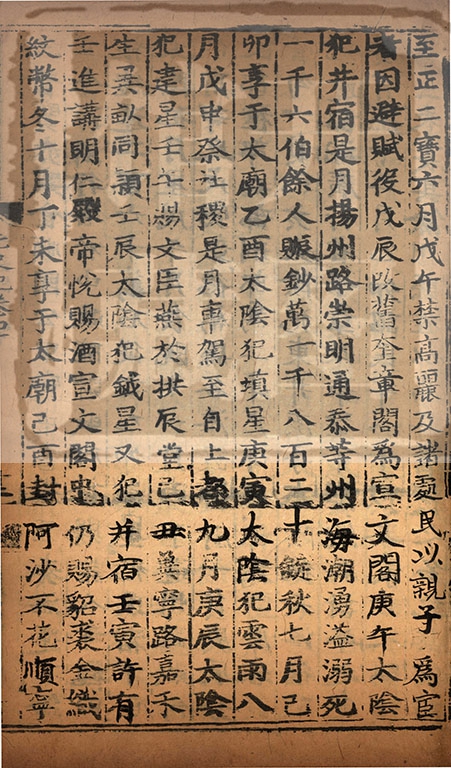 至正二寶六月戊午禁高麗及諸處民以親子為宦
者因避賦役戊辰改舊奎章閣為宣文閣庚午太陰
犯井宿是月揚州路崇明通泰等州海潮湧溢溺死
一千六伯餘人賑鈔萬一千八百二十錠秋七月己
卯享于太廟乙酉太陰犯填星庚寅太陰犯雲雨八
月戊申祭社稷是月車駕至自上都九月庚辰太陰
犯建星壬午賜文臣燕於拱辰堂己丑冀寧路嘉禾
生異畝同穎壬辰太陰犯鉞星又犯井宿壬寅許有
壬進講明仁殿帝悅賜酒宣文閣中仍賜貂裘金織
紋幣冬十月丁未享于太廟己酉封阿沙不花順寧